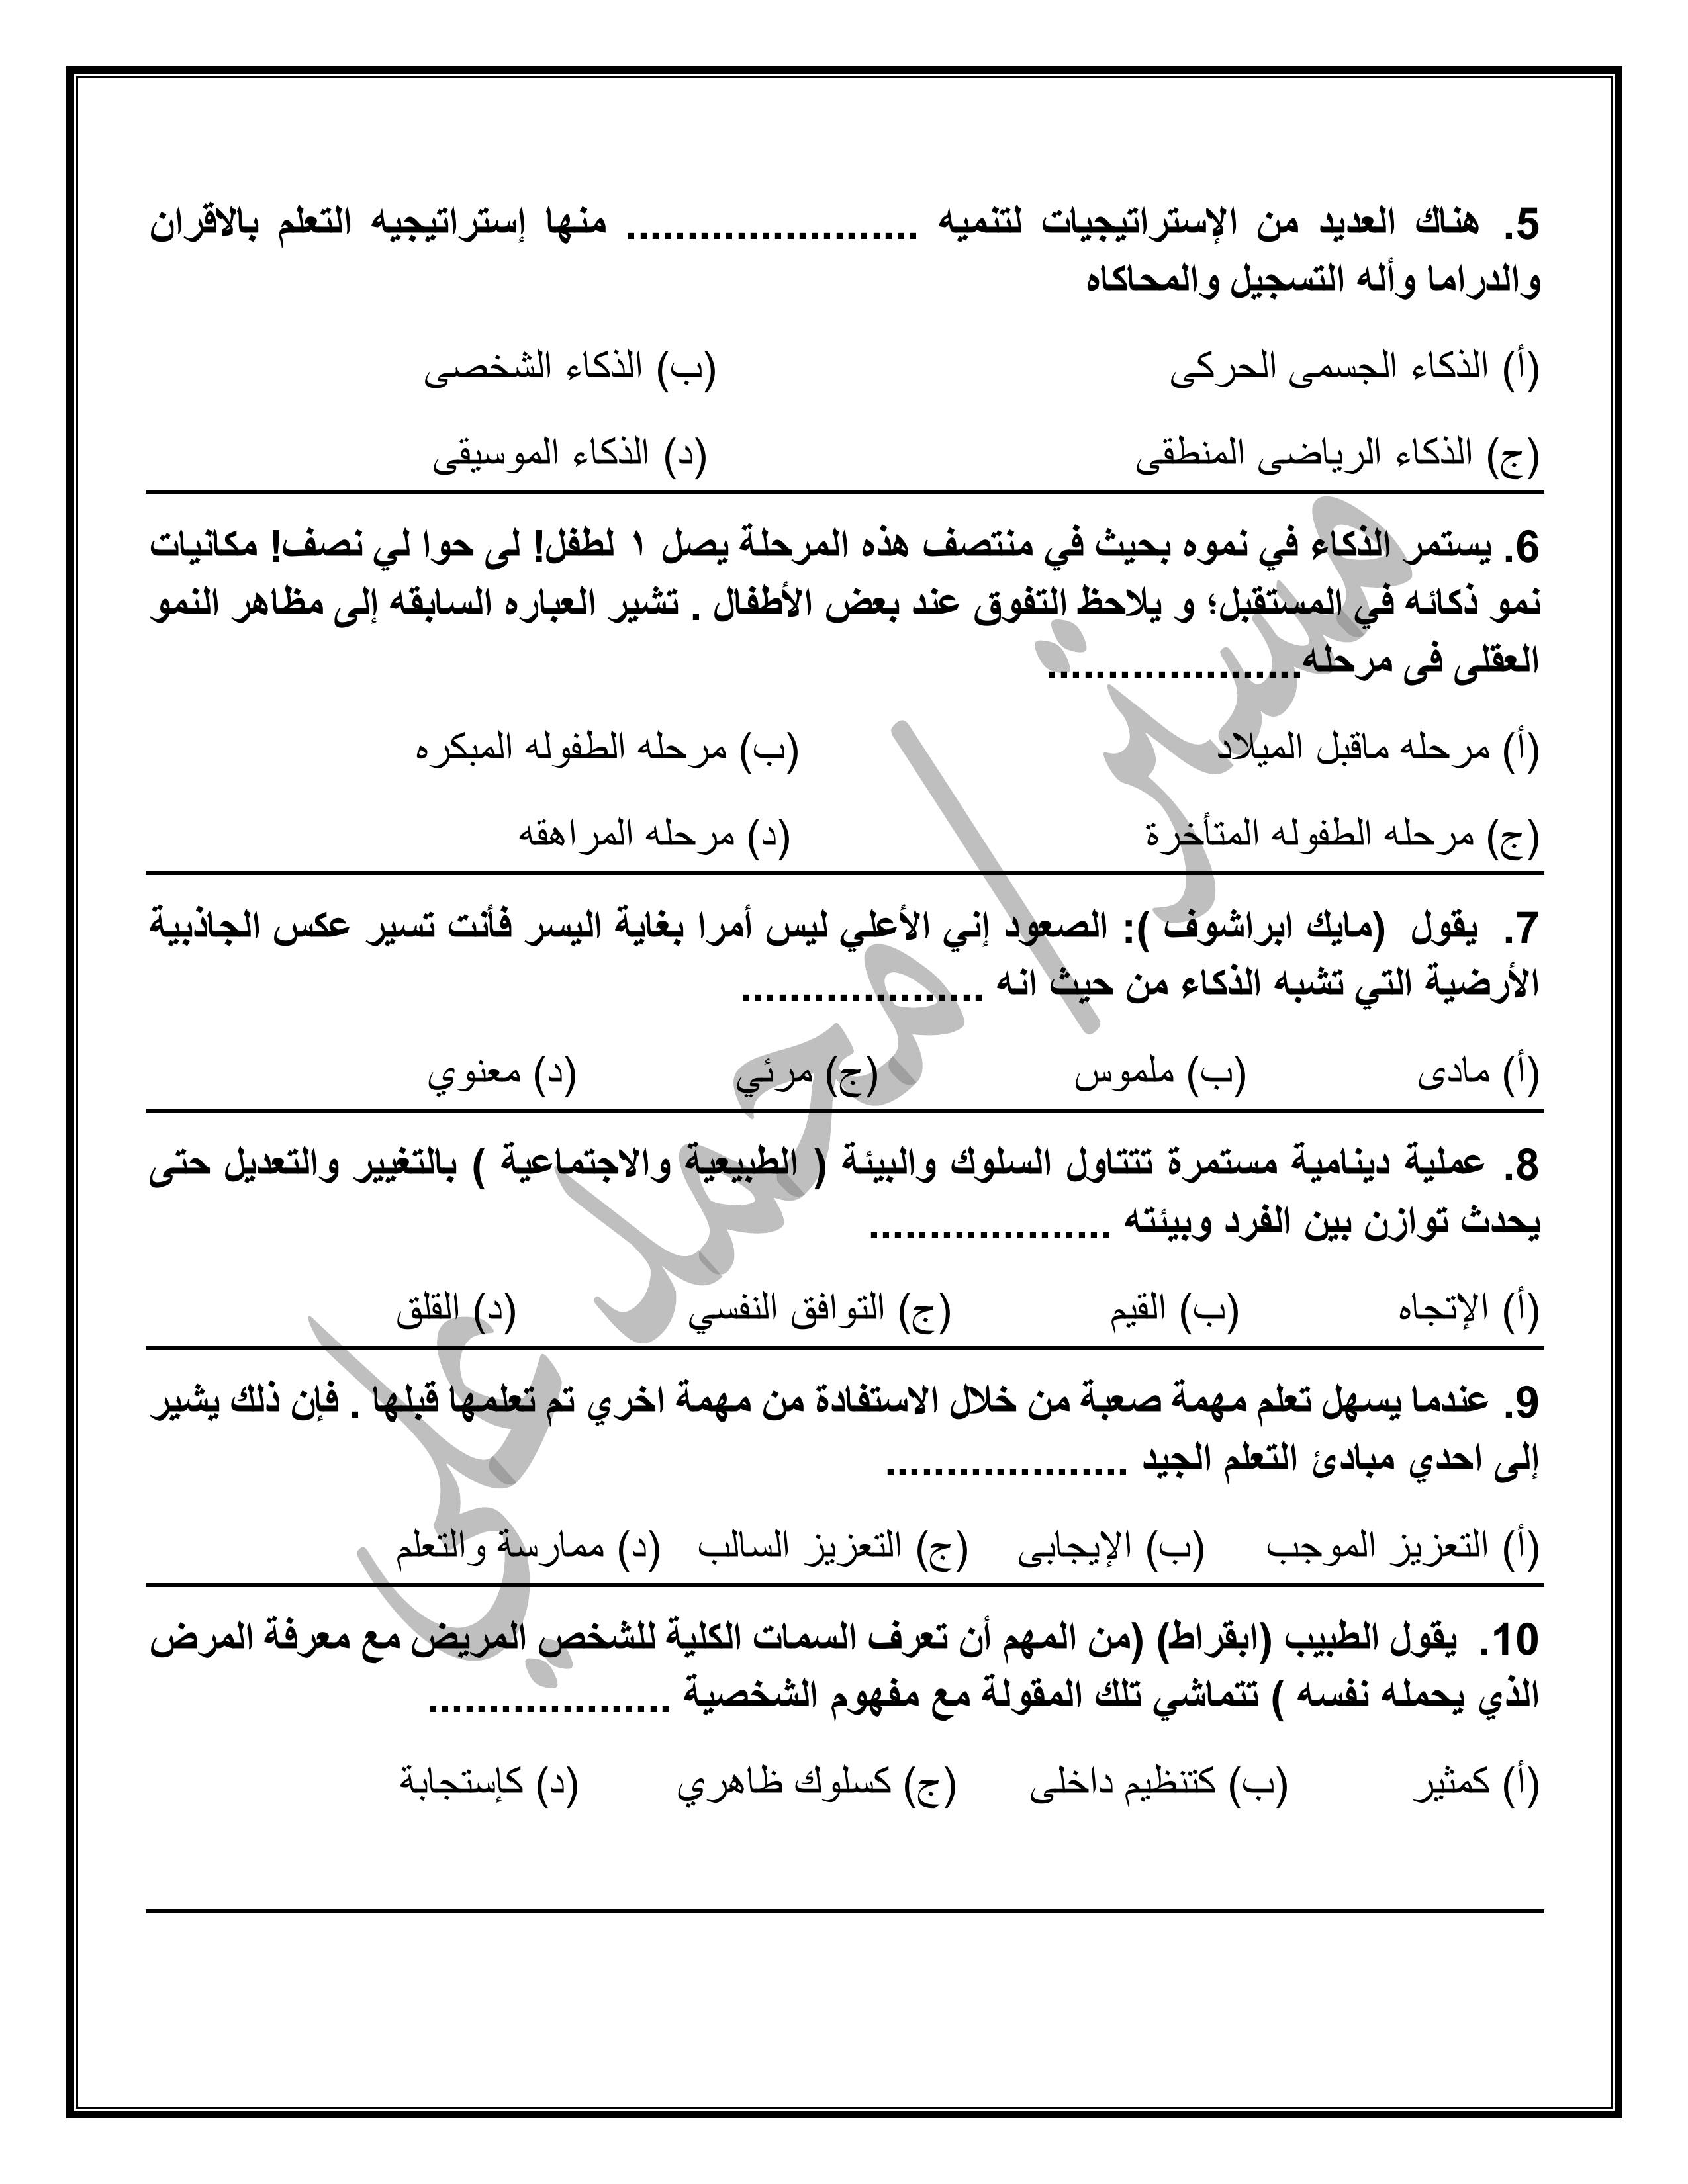 5. هناك العديد من الإستراتيجيات لتنميه ........................ منها إستراتيجيه التعلم بالاقران
والدراما وأله التسجيل والمحاكاه
(أ) الذكاء الجسمى الحركى (ب) الذكاء الشخصى
(ج) الذكاء الرياضى المنطقى (د) الذكاء الموسيقى
6. يستمر الذكاء في نموه بحيث في منتصف هذه المرحلة يصل ١ لطفل! لى حوا لي نصف! مكانيات
نمو ذكائه في المستقبل؛ و يلاحظ التفوق عند بعض الأطفال . تشير العباره السابقه إلى مظاهر النمو
العقلى فى مرحله.....................
(أ) مرحله ماقبل الميلاد (ب) مرحله الطفوله المبكره
(ج) مرحله الطفوله المتأخرة (د) مرحله المراهقه
7. يقول (مايك ابراشوف ): الصعود إني الأعلي ليس أمرا بغاية اليسر فأنت تسير عكس الجاذبية
الأرضية التي تشبه الذكاء من حيث انه ....................
(أ) مادى (ب) ملموس (ج) مرئي (د) معنوي
8. عملية دينامية مستمرة تتتاول السلوك والبيئة ( الطبيعية والاجتماعية ) بالتغيير والتعديل حتى
يحدث توازن بين الفرد وبيئته ....................
(أ) الإتجاه (ب) القيم (ج) التوافق النفسي (د) القلق
9. عندما يسهل تعلم مهمة صعبة من خلال الاستفادة من مهمة اخري تم تعلمها قبلها . فإن ذلك يشير
إلى احدي مبادئ التعلم الجيد ....................
(أ) التعزيز الموجب (ب) الإيجابى (ج) التعزيز السالب (د) ممارسة والتعلم
10. يقول الطبيب (ابقراط) (من المهم أن تعرف السمات الكلية للشخص المريض مع معرفة المرض
الذي يحمله نفسه ) تتماشي تلك المقولة مع مفهوم الشخصية ....................
(أ) كمثير (ب) كتنظيم داخلى (ج) كسلوك ظاهري (د) كإستجابة
مستر/ محمد علي